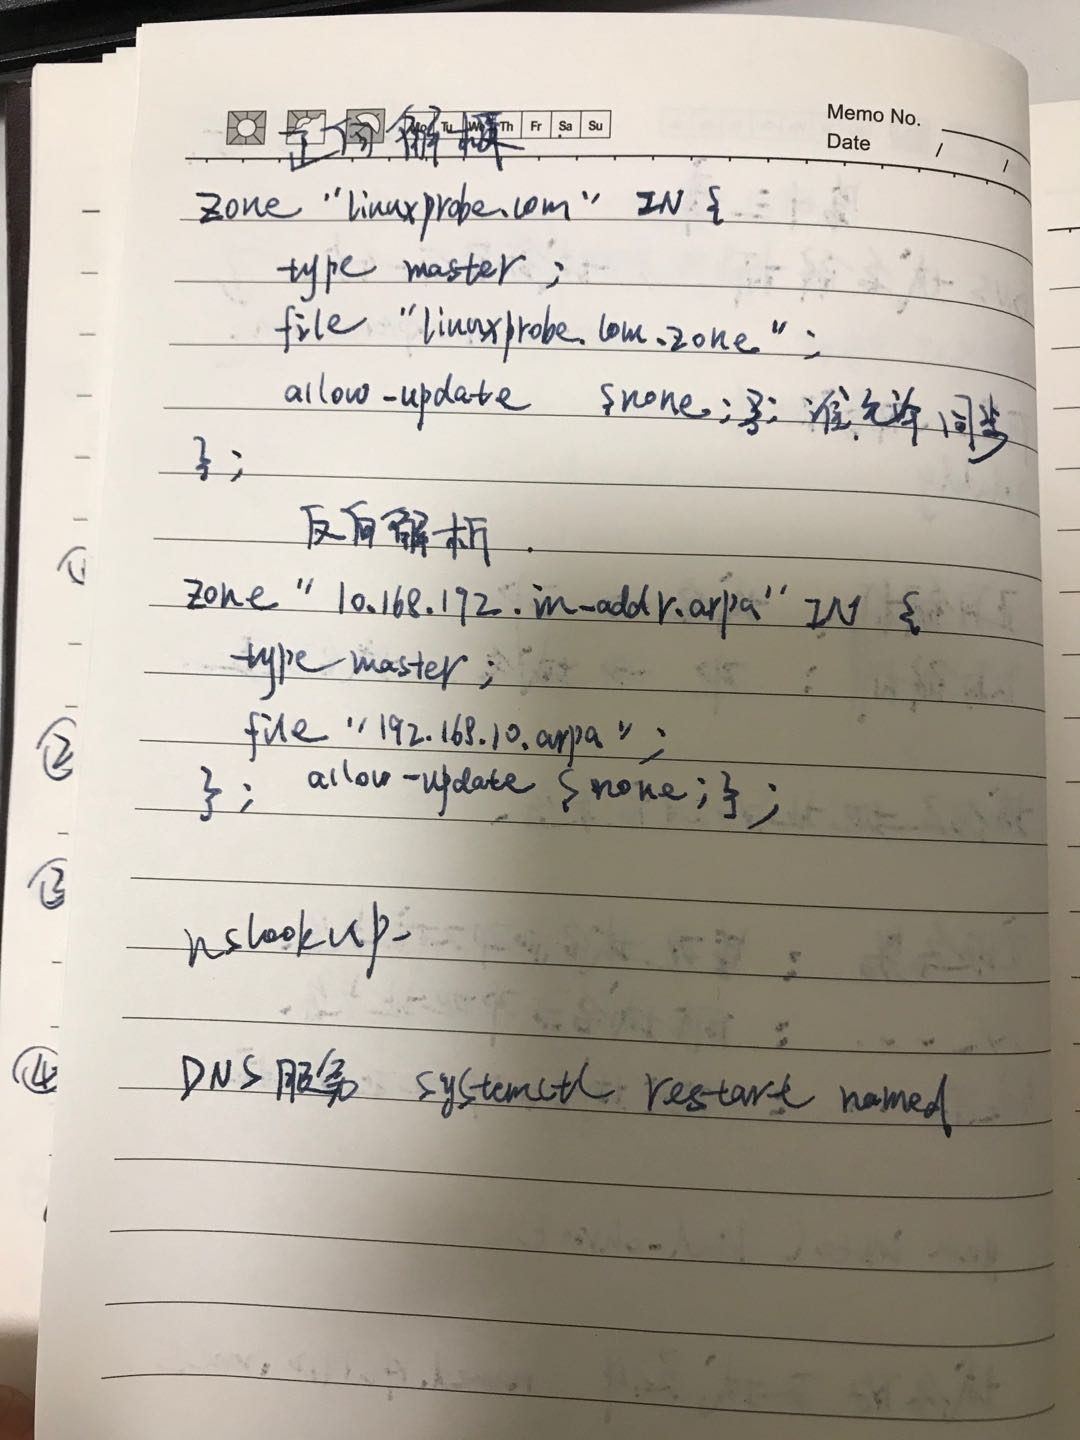 Memo No.
Mo Tu We Th Fr Sa Su
Date / /
正向解释
zone "linuxprobe.com" IN {
type master ;
file "linuxprobe.com.zone" ;
allow-update {none;}; 谁允许同步
} ;
反向解析.
zone "10.168.192.in-addr.arpa" IN {
type master ;
file "192.168.10.arpa" ;
} ; allow-update {none;};
nslookup
DNS服务 systemctl restart named
①
②
③
④